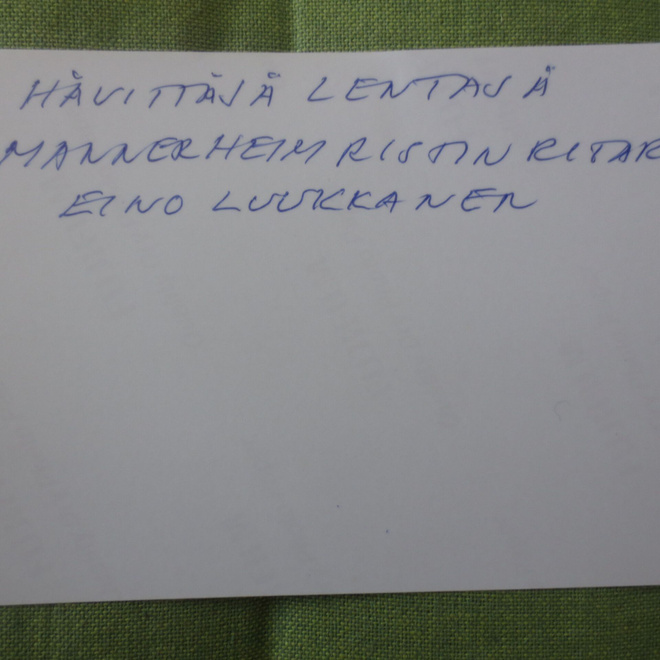 HÄVITTÄJÄ LENTAJÄ
MANNERHEIM RISTIN RITAR
EINO LUUKKANEN